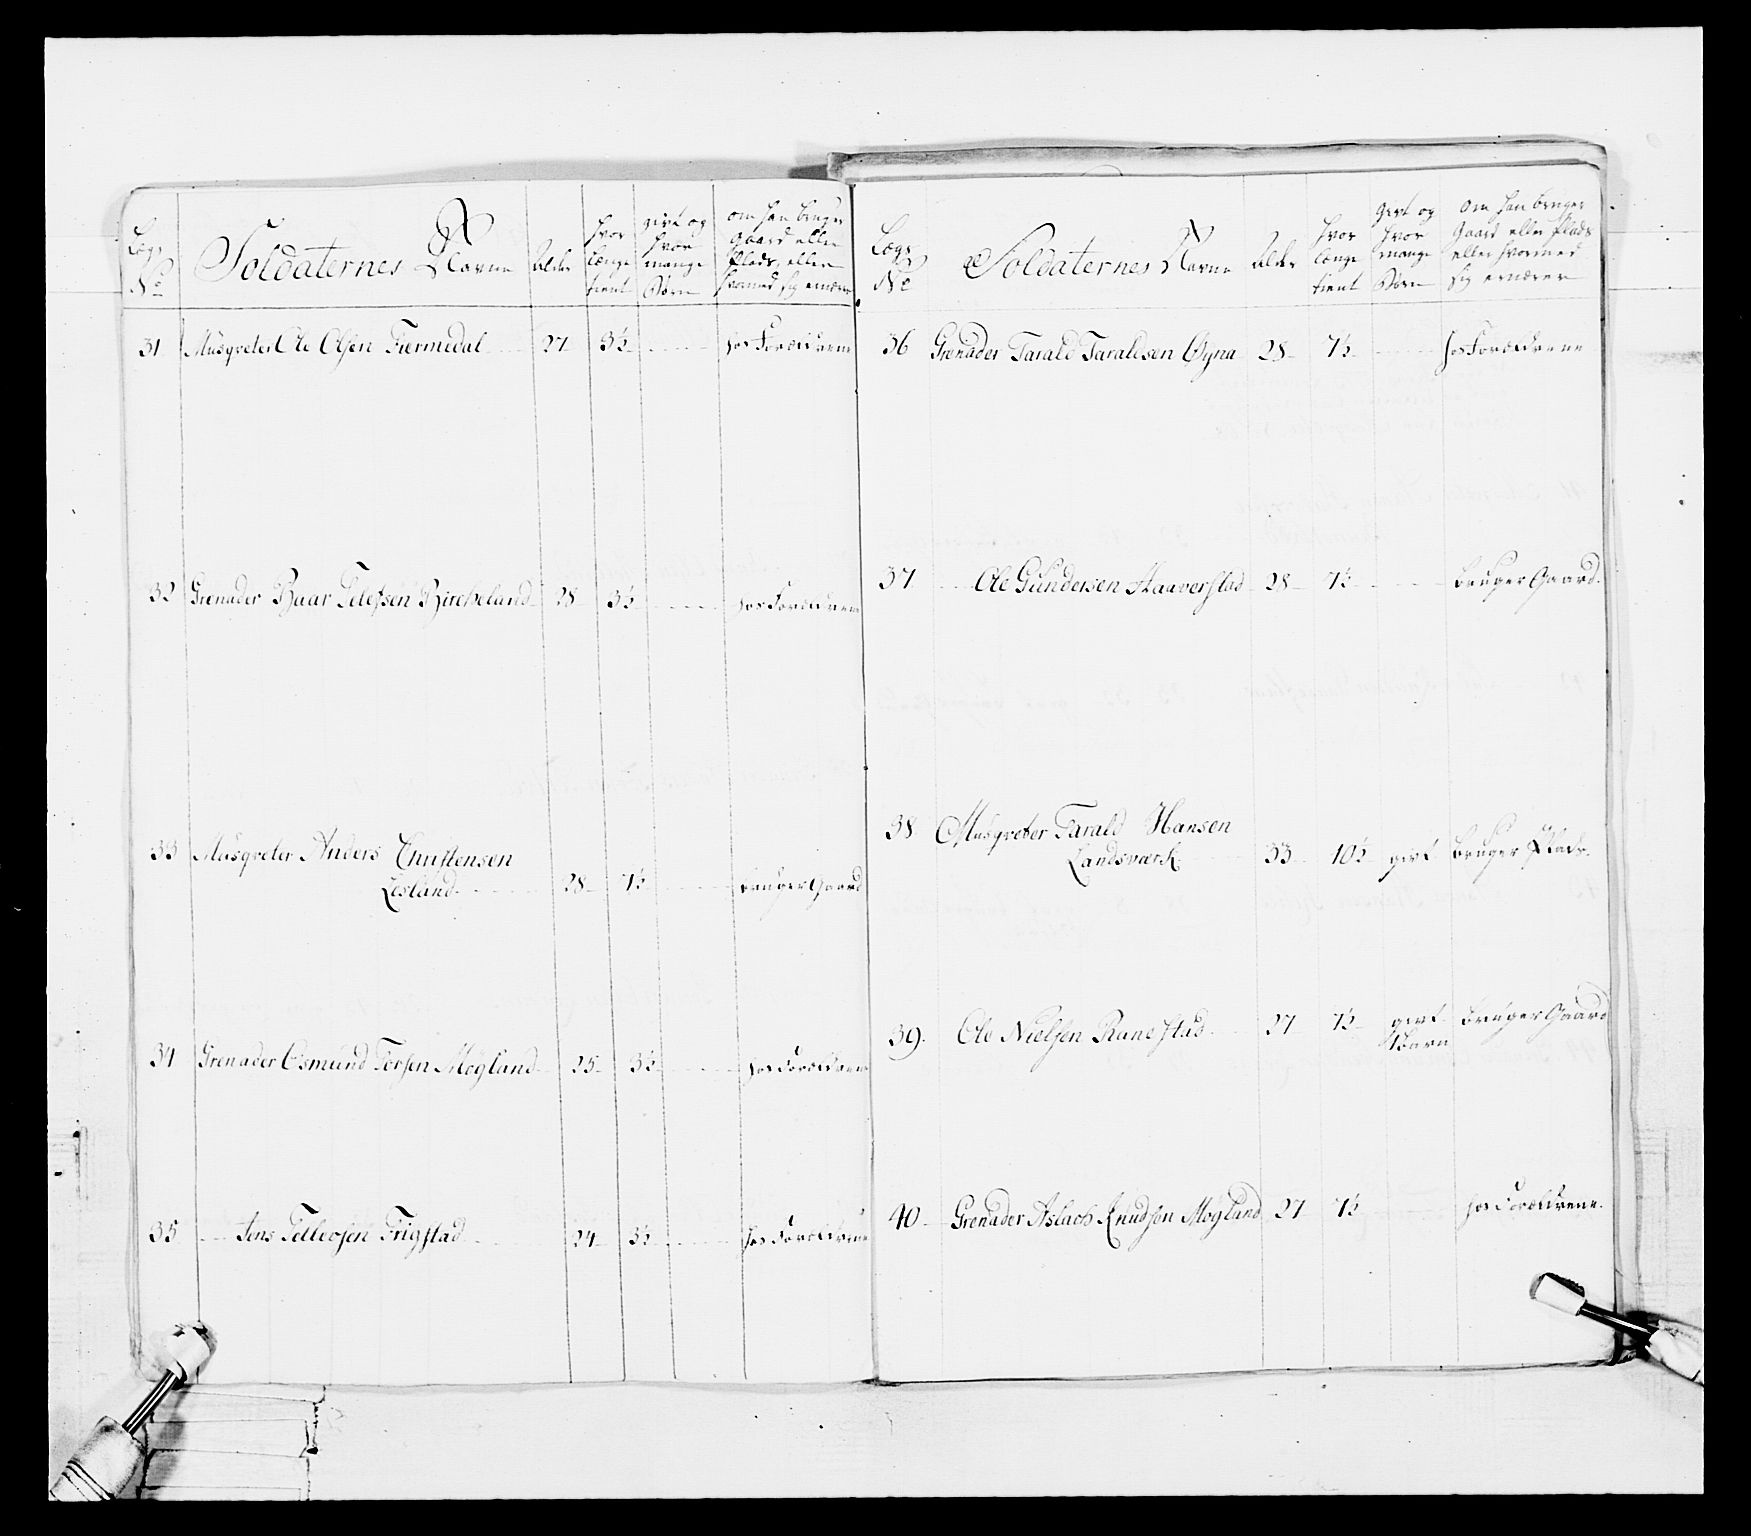 Lægs No
Soldaternes Navne
Alder
hvor længe tient
givt og hvor mange Børn
om han bruger Gaard eller Plads, eller hvormed sig ernærer
31 Musqveter Ole Olsen Tiermedal 27 3½ hos Forældrene
32 Grenader Baar Tellefsen Bircheland 28 3½ hos Forældrene
33 Musqveter Anders Christensen
Lesland 28 7½ bruger Gaard
34 Grenader Osmund Torsen Møgland 25 3½ hos Forældrene
35 Jens Tellevsen Frigstad 24 3½ hos Forældrene
Lægs No
Soldaternes Navne
Alder
hvor længe tient
givt og hvor mange Børn
om han bruger Gaard eller Plads eller hvormed sig ernærer
36 Grenader Tarald Taraldsen Øyna 28 7½ hos Forældrene
37 Ole Gundersen Haaverstad 28 7½ bruger Gaard.
38 Musqveter Tarald Hansen
Landsværk 33 10½ givt bruger Plads.
39. Ole Nielsen Ranestad 27 7½ givt bruger Gaard
1 barn
40 Grenader Aslach Knudsen Møgland 27 7½ hos Forældrene.